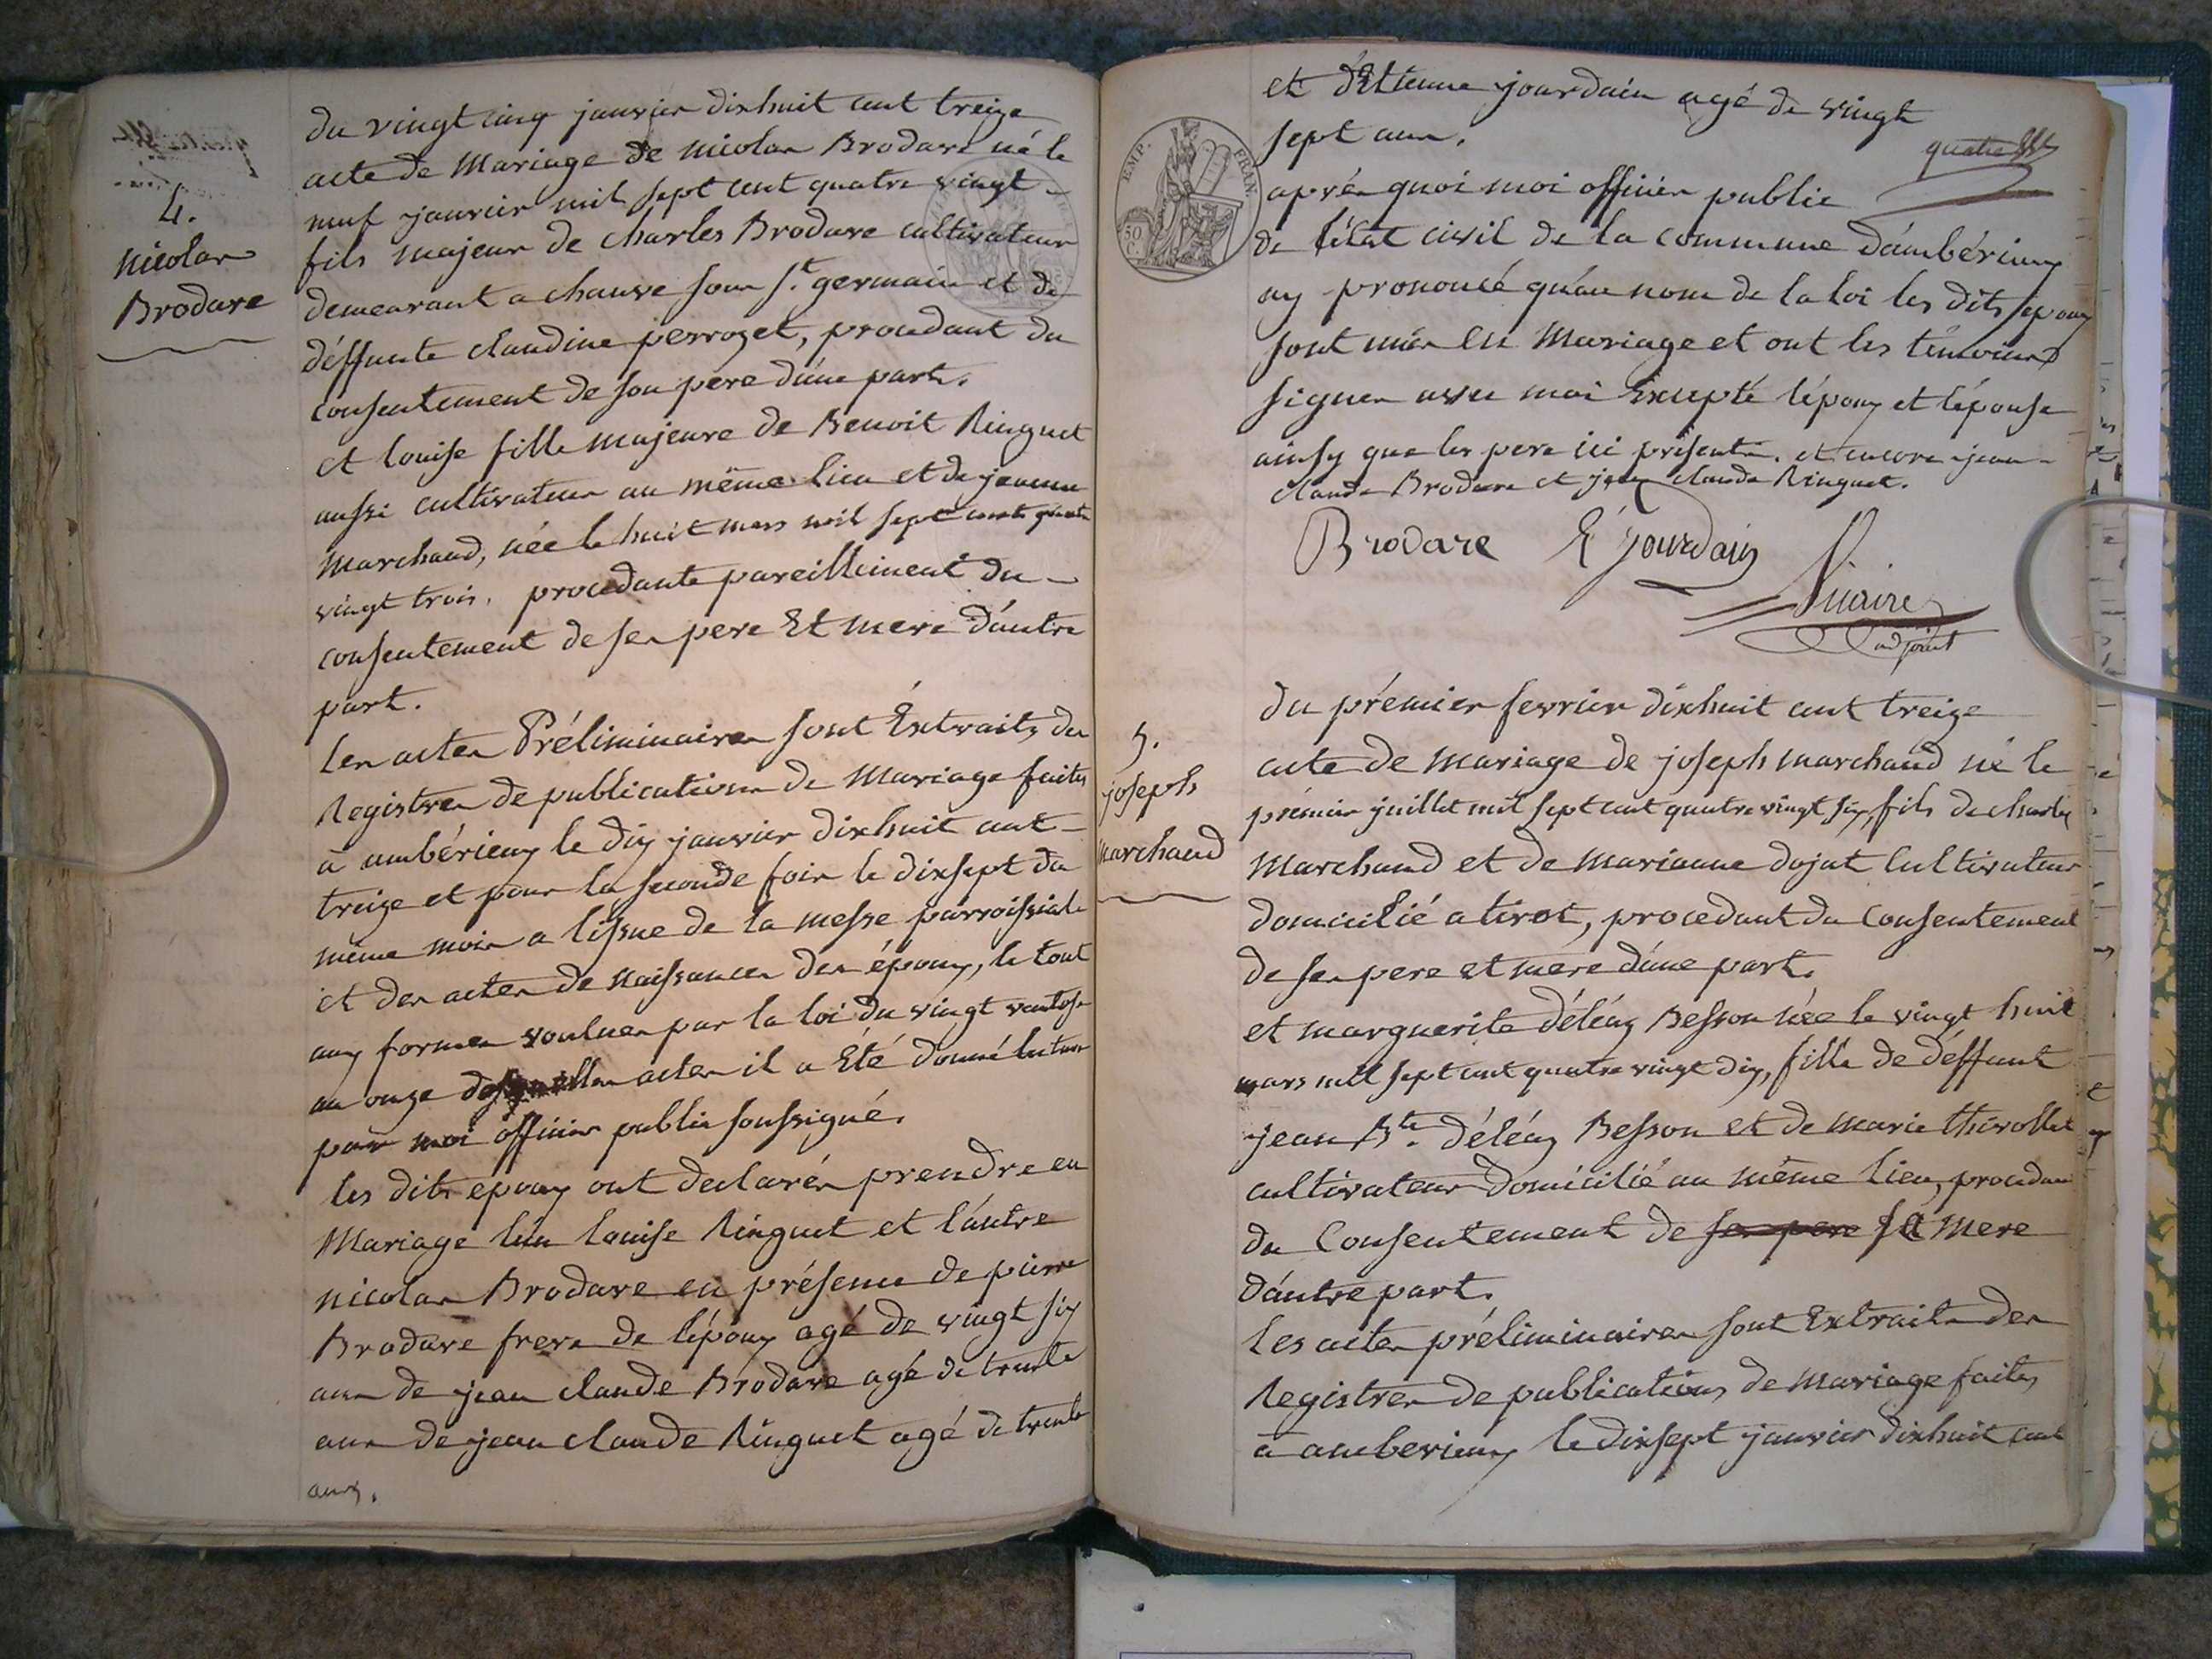 4.
nicolas
Brodare
du vingt cinq janvier dixhuit cent treize
acte de Mariage de nicolas Brodare né le
neuf janvier mil sept cent quatre vingt
fils majeur de charles Brodare cultivateur
demeurant a chauve sous st. germain et de
déffunte claudine perrozet, procedant du
consentement de son pere d'une part.
et louise fille majeure de Benoit Ringuet
aussi cultivateur au même lieu et de jeanne
Marchand, née le huit mars mil sept cent quatre
vingt trois, procedante pareillement du
consentement de ses pere Et mere d'autre
part.
les actes Préliminaires sont Extraits du
Registres de publications de Mariage faites
à ambérieux le dix janvier dixhuit cent
treize et pour la seconde fois le dixsept du
même mois a lissue de la messe parroissiale
et des actes de naissances des époux, le tout
aux formes voulues par la loi du vingt ventose
an onze actes il a Eté donné lecture
par moi officier public soussigné.
les dits epoux ont declarés prendre en
Mariage l'un louise Ringuet et l'autre
nicolas Brodare en présence de pierre
Brodare frere de l'époux agé de vingt six
ans de jean claude Brodare agé de trente
ans de jean claude Ringuet agé de trente
ans,
et d'Etienne jourdain agé de vingt
sept ans.
quatre
EMP. FRAN.
50 C.
aprés quoi moi officier public
de l'état civil de la commune d'ambérieux
ay prononcé qu'au nom de la loi les dits epoux
sont unis en Mariage et ont les témoins
signer avec moi Excepté l'époux et l'épouse
ainsy que les pere ici présents. et encore jean
claude Brodare et jean claude Ringuet.
Brodare E Jourdain
adjoint
5.
joseph
marchand
du prémier fevrier dixhuit cent treize
acte de mariage de joseph marchand né le
prémier juillet mil sept cent quatre vingt six, fils de charles
Marchand et de marianne dojat Cultivateur
domicilié a tiret, procedant du Consentement
de ses pere et mere d'une part.
et marguerite déléaz Besson née le vingt huit
mars mil sept cent quatre vingt dix, fille de déffunt
jean Bte. déléaz Besson et de marie thivollet
cultivateur domicilié au même lieu, procedant
du Consentement de ses pere sa mere
d'autre part.
les actes préliminaires sont Extraits des
Registres de publications de mariage faites
à amberieux le dixsept janvier dixhuit cent